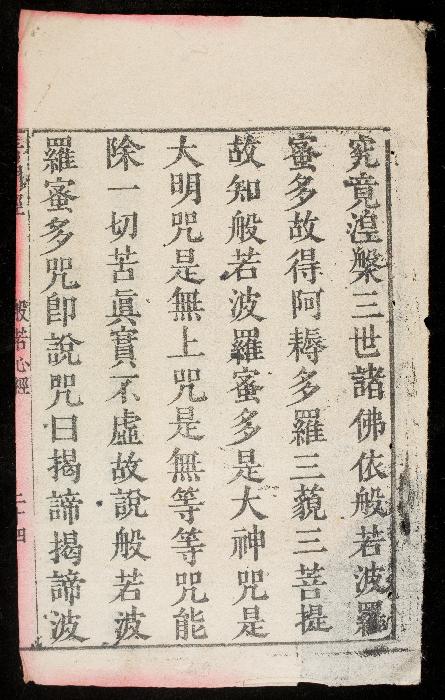 究竟湼槃三世諸佛依般若波羅
蜜多故得阿耨多羅三藐三菩提
故知般若波羅蜜多是大神咒是
大明咒是無上咒是無等等咒能
除一切苦眞實不虛故說般若波
羅蜜多咒卽說咒曰揭諦揭諦波
般若心經